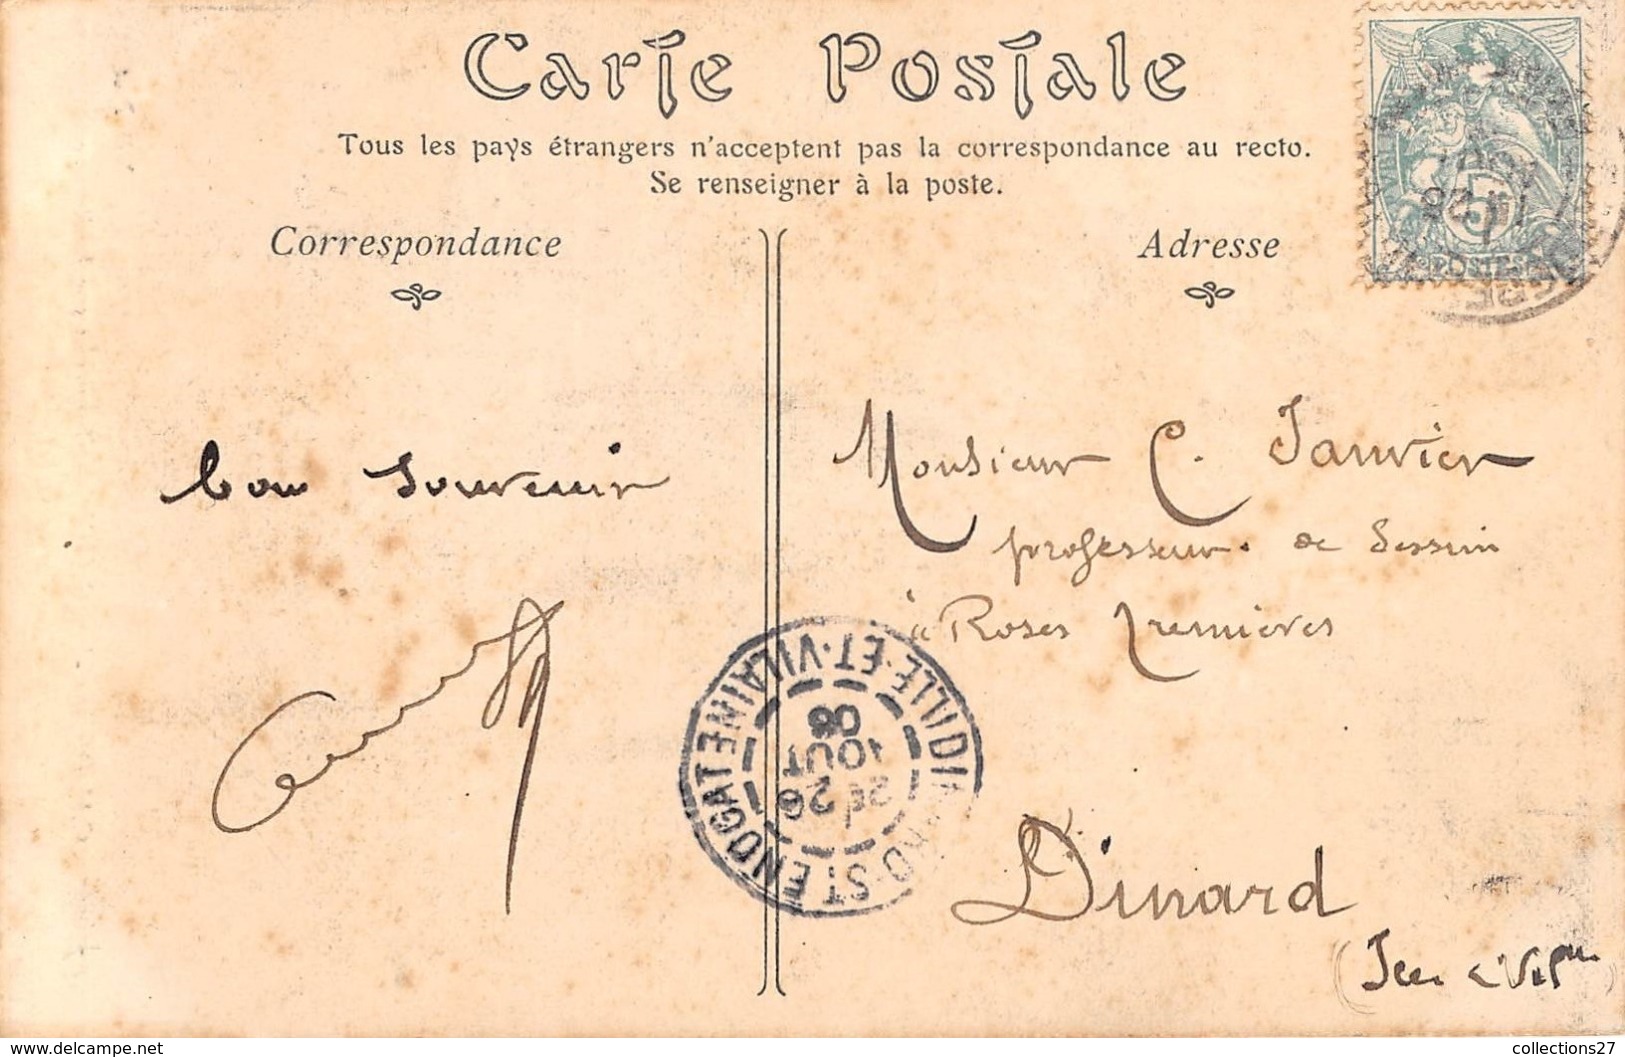 Carte Postale
Tous les pays étrangers n'acceptent pas la correspondance au recto.
Se renseigner à la poste.
Correspondance
Adresse
5
POSTES
bon souvenir
Monsieur C. Janvier
professeur de dessin
à Roses Tremières
Dinard
(Ille &
DINARD-ST ENOGAT ILLE-ET-VILAINE
2E 26
AOUT
06
www.delcampe.net
collections27